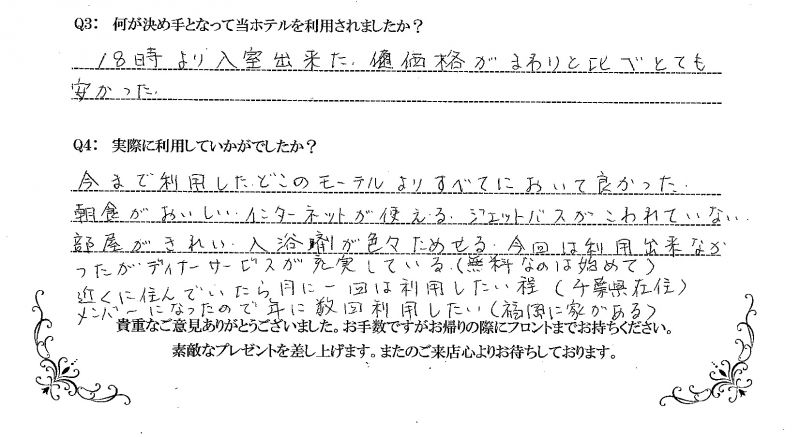 Q3: 何が決め手となって当ホテルを利用されましたか？
18時より入室出来た. 価格がまわりと比べとても
安かった.
Q4: 実際に利用していかがでしたか？
今まで利用したどこのモーテルよりすべてにおいて良かった.
朝食がおいしい. インターネットが使える. ジェットバスがこわれていない.
部屋がきれい. 入浴剤が色々ためせる. 今回は利用出来なか
ったがディナーサービスが充実している.(無料なのは始めて)
近くに住んでいたら月に一回は利用したい程 (千葉県在住)
メンバーになったので年に数回利用したい(福岡に家がある)
貴重なご意見ありがとうございました。お手数ですがお帰りの際にフロントまでお持ちください。
素敵なプレゼントを差し上げます。またのご来店心よりお待ちしております。